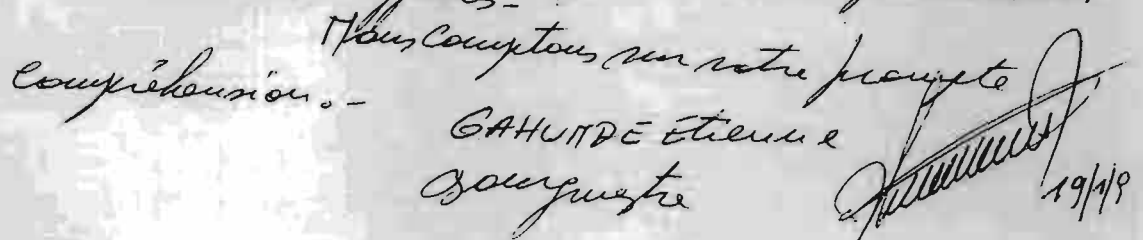 Nous comptons sur votre prompte
compréhension.-
GAHUMBE Etienne
Bourgmestre
19/1/9